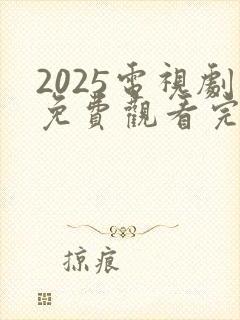 2025電視劇
免費觀看完
掠痕